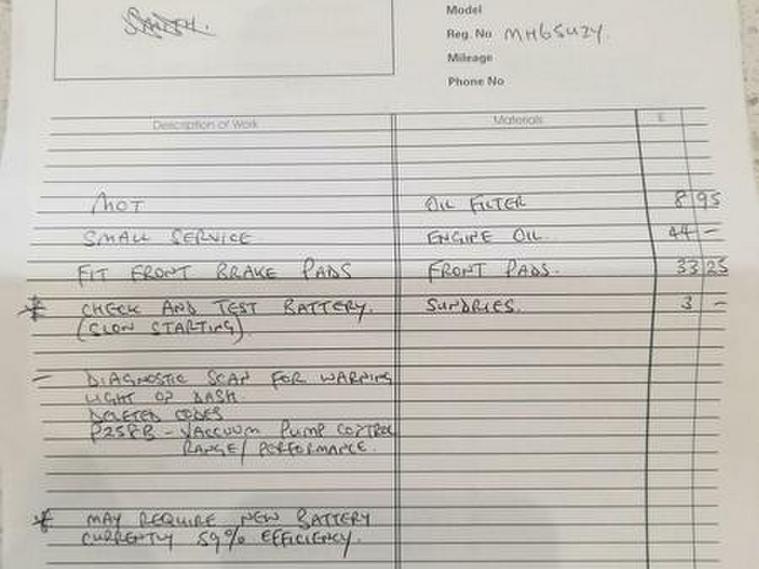 Model
Reg. No MH65UZY.
Mileage
Phone No
Description of Work Materials £
MOT OIL FILTER 8 95
SMALL SERVICE ENGINE OIL. 44 -
FIT FRONT BRAKE PADS FRONT PADS. 33 25
* CHECK AND TEST BATTERY. SUNDRIES. 3 -
(SLOW STARTING).
- DIAGNOSTIC SCAN FOR WARNING
LIGHT ON DASH.
DELETED CODES
P258B - VACCUUM PUMP CONTROL
RANGE/ PERFORMANCE.
* MAY REQUIRE NEW BATTERY
CURRENTLY 59% EFFICIENCY.